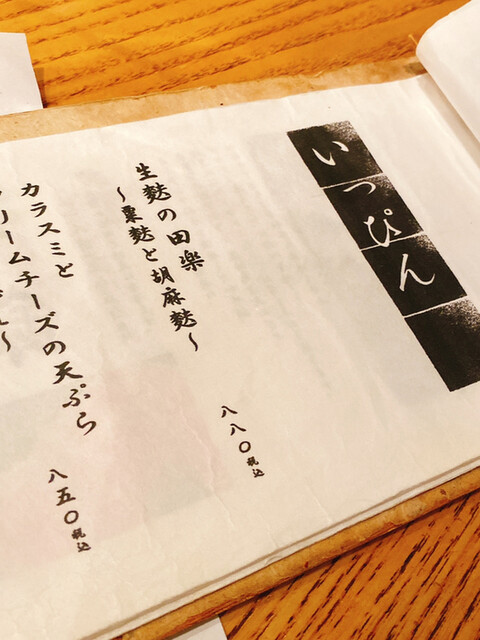 いっぴん
生麩の田楽
〜粟麩と胡麻麩〜
八八〇税込
カラスミと
クリームチーズの天ぷら
八五〇税込